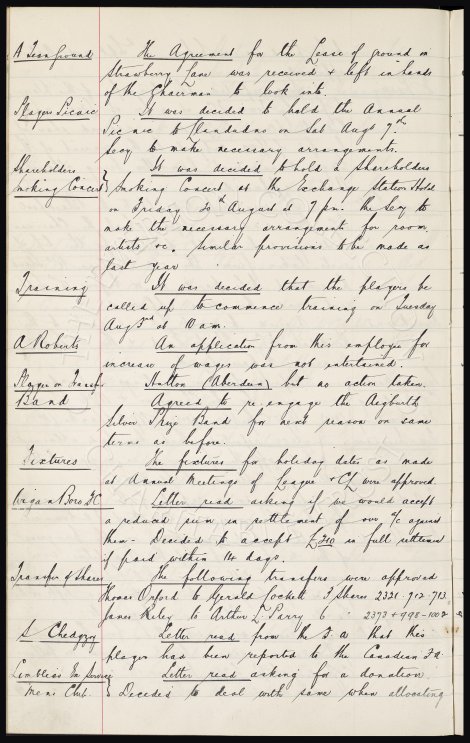 A Team Ground
The Agreement for the Lease of ground on
Strawberry Lane was received & left in hands
of the Chairman to look into.
Players Picnic
It was decided to hold the Annual
Picnic to Llandudno on Sat Augt 7th
Secy to make necessary arrangements.
Shareholders
Smoking Concert
It was decided to hold a Shareholders
Smoking Concert at the Exchange Station Hotel
on Friday 20th August at 7 pm. the Secy to
make the necessary arrangements for room,
artists &c. Similar provisions to be made as
last year
Training
It was decided that the players be
called up to commence training on Tuesday
Aug 3rd at 10 am.
A Roberts
An application from this employee for
increase of wages was not entertained.
Player on Transfer
Hutton (Aberdeen) but no action taken.
Band
Agreed to re-engage the Aigburth
Silver Prize Band for next season on same
terms as before.
Fixtures
The fixtures for holiday dates as made
at Annual Meetings of League & CL were approved
Wigan Boro FC
Letter read asking if we would accept
a reduced sum in settlement of our a/c against
them - Decided to accept in full settlement
if paid within 14 days.
Transfer of Shares
The following transfers were approved
Thomas Orford to Gerald Lockett 3 Shares 2321-712-713
James Ruley to Arthur L Parry 6 " 2373 & 998-1002
S Chedgzoy
Letter read from the F.A that this
player had been reported to the Canadian FA.
Limbless Ex Service
Mens Club.
Letter read asking for a donation
Decided to deal with same when allocating